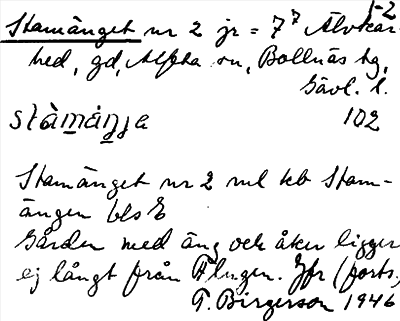 1-2
Stamänget nr 2 jr = 7⁷ Älvkar-
hed, gd, Alfta sn, Bollnäs tg,
Gävl. l.
stàmáŋ̲ja 102
Stamänget nr 2 ml teb Stam-
ängen bls E
Gården med äng och åker ligger
ej långt från Älvgen. Jfr (forts.)
T. Birgerson 1946